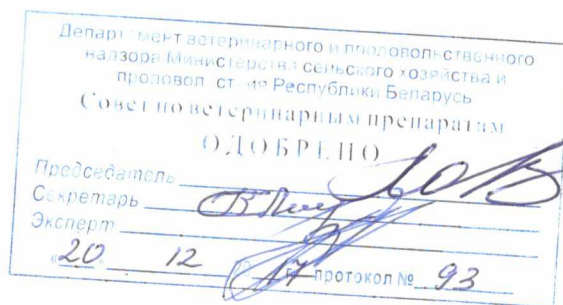 Департамент ветеринарного и продовольственного
надзора Министерства сельского хозяйства и
продовольствия Республики Беларусь
Совет по ветеринарным препаратам
ОДОБРЕНО
Председатель
Секретарь
Эксперт
«20» 12 17 г. протокол № 93